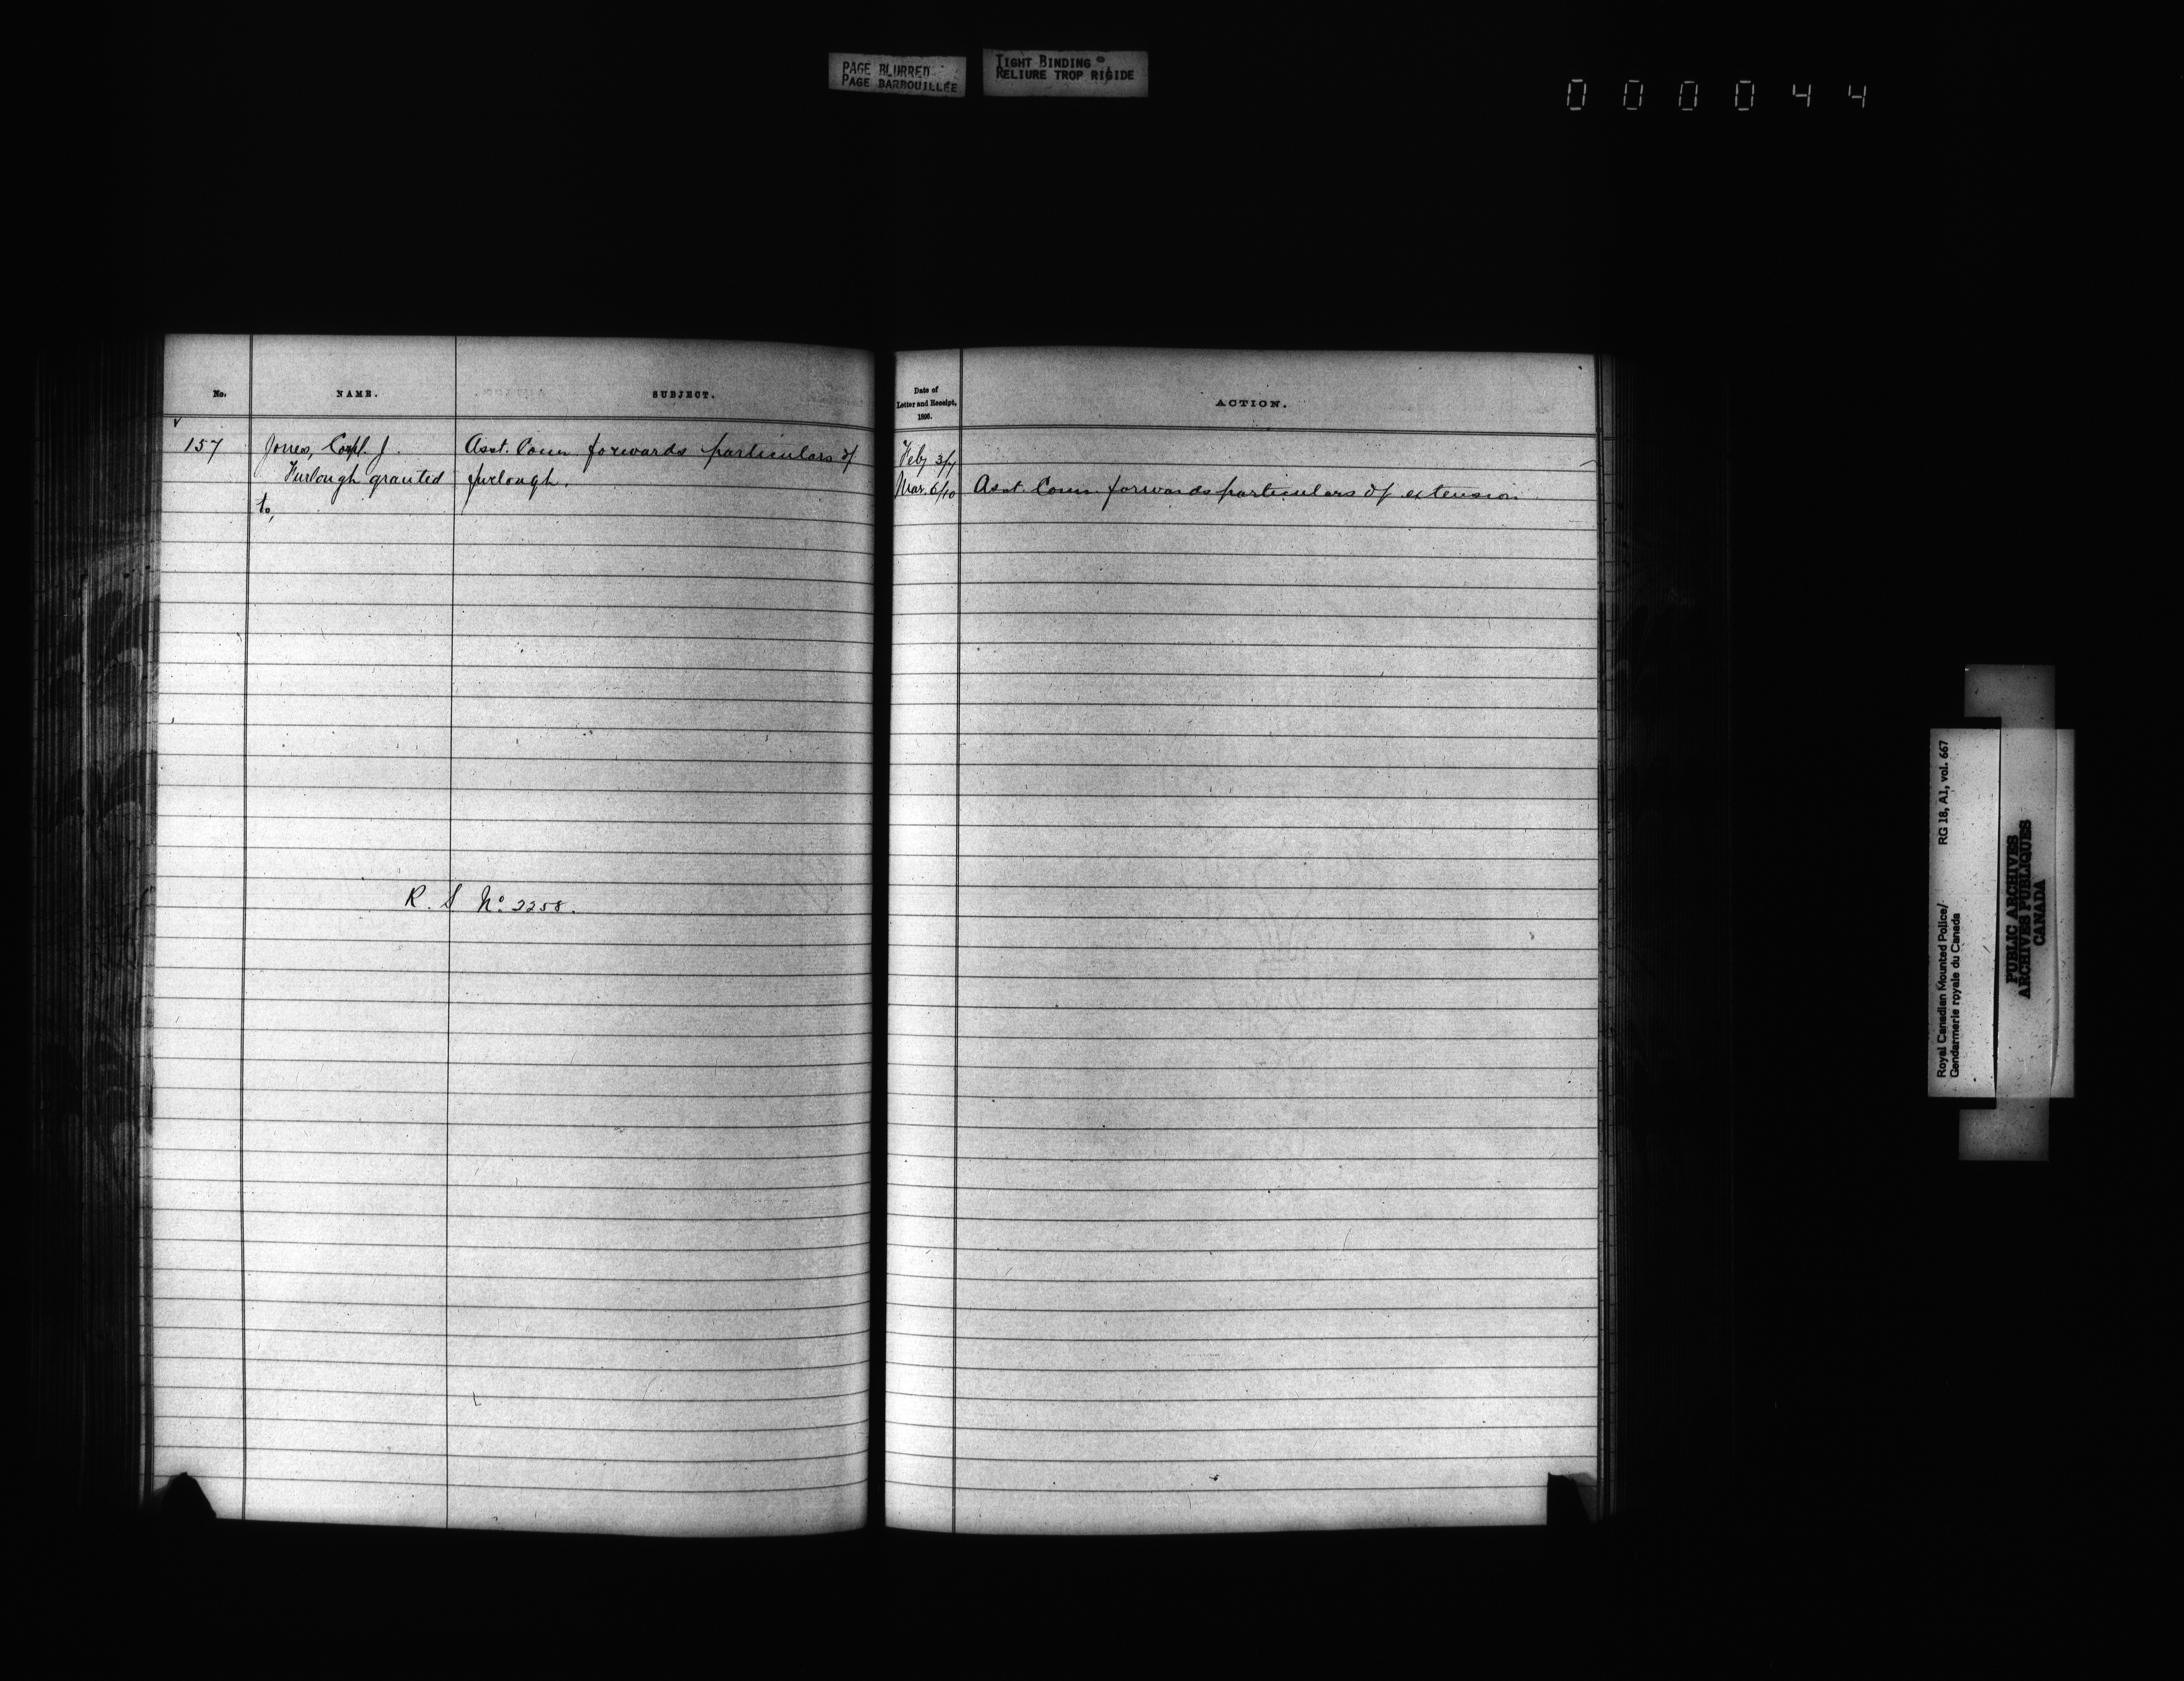 PAGE BLURRED
PAGE BARBOUILLÉE
TIGHT BINDING
RELIURE TROP RIGIDE
000044
No.
NAME.
SUBJECT.
157
Jones, Corpl. J.
Furlough granted
to,
Asst. Comr. forwards particulars of
furlough.
R. S No. 2258.
Date of
Letter and Receipt,
1896.
ACTION.
Feby 3/7
Mar. 6/10
Asst. Comr. forwards particulars of extension
Royal Canadian Mounted Police/
Gendarmerie royale du Canada
RG 18, A1, vol. 667
PUBLIC ARCHIVES
ARCHIVES PUBLIQUES
CANADA